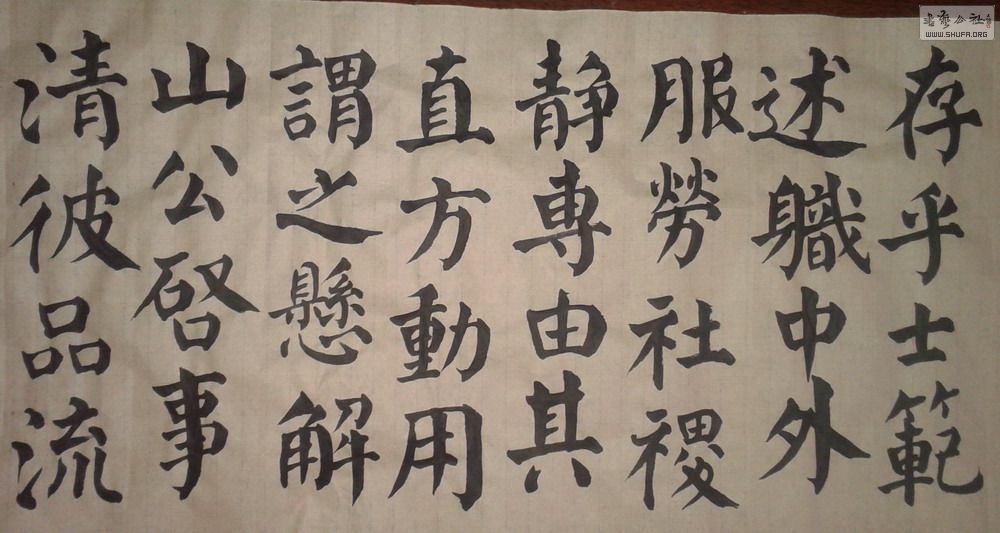 存乎士範
述軄中外
服勞社禝
静專由其
直方動用
謂之懸解
山公啓事
清彼品流
書藝公社
WWW.SHUFA.ORG